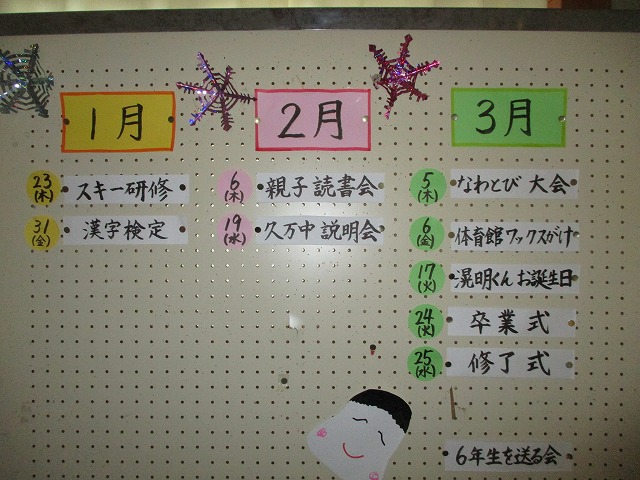 1月
23(木) スキー研修
31(金) 漢字検定
2月
6(木) 親子読書会
19(水) 久万中説明会
3月
5(木) なわとび大会
6(金) 体育館ワックスがけ
17(火) 滉明くんお誕生日
24(火) 卒業式
25(水) 修了式
6年生を送る会